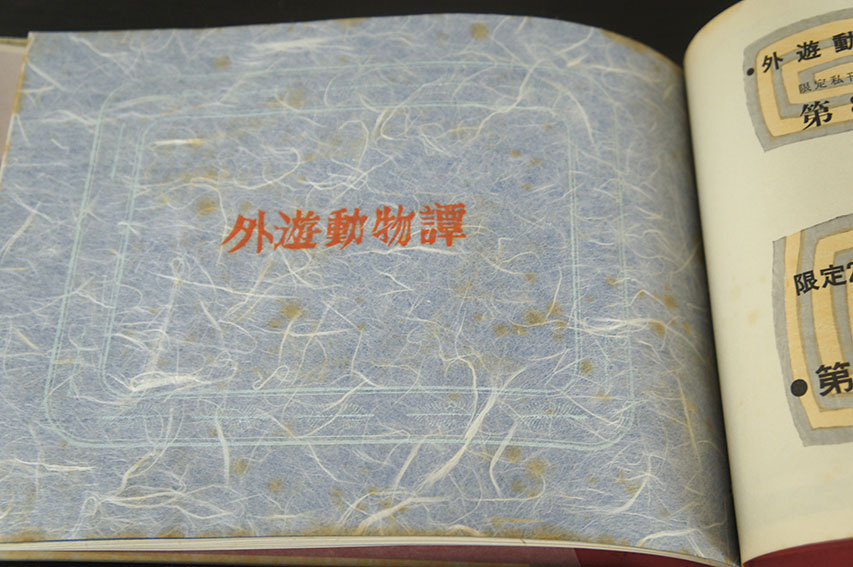 外遊動物譚
・外遊動
限定私
第
限定
●第